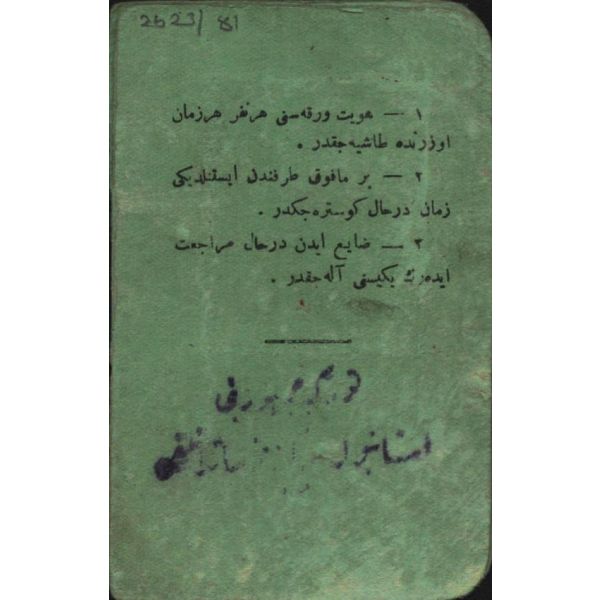 2623/81
١ — هويت ورقه‌سنی هرنفر هرزمان
اوزرنده طاشیه‌جقدر .
٢ — بر مافوق طرفندن ایستنلدیکی
زمان درحال کوستره‌جکدر .
٣ — ضایع ایدن درحال مراجعت
ایده‌رك یکیسنی آله‌جقدر .
استانبول